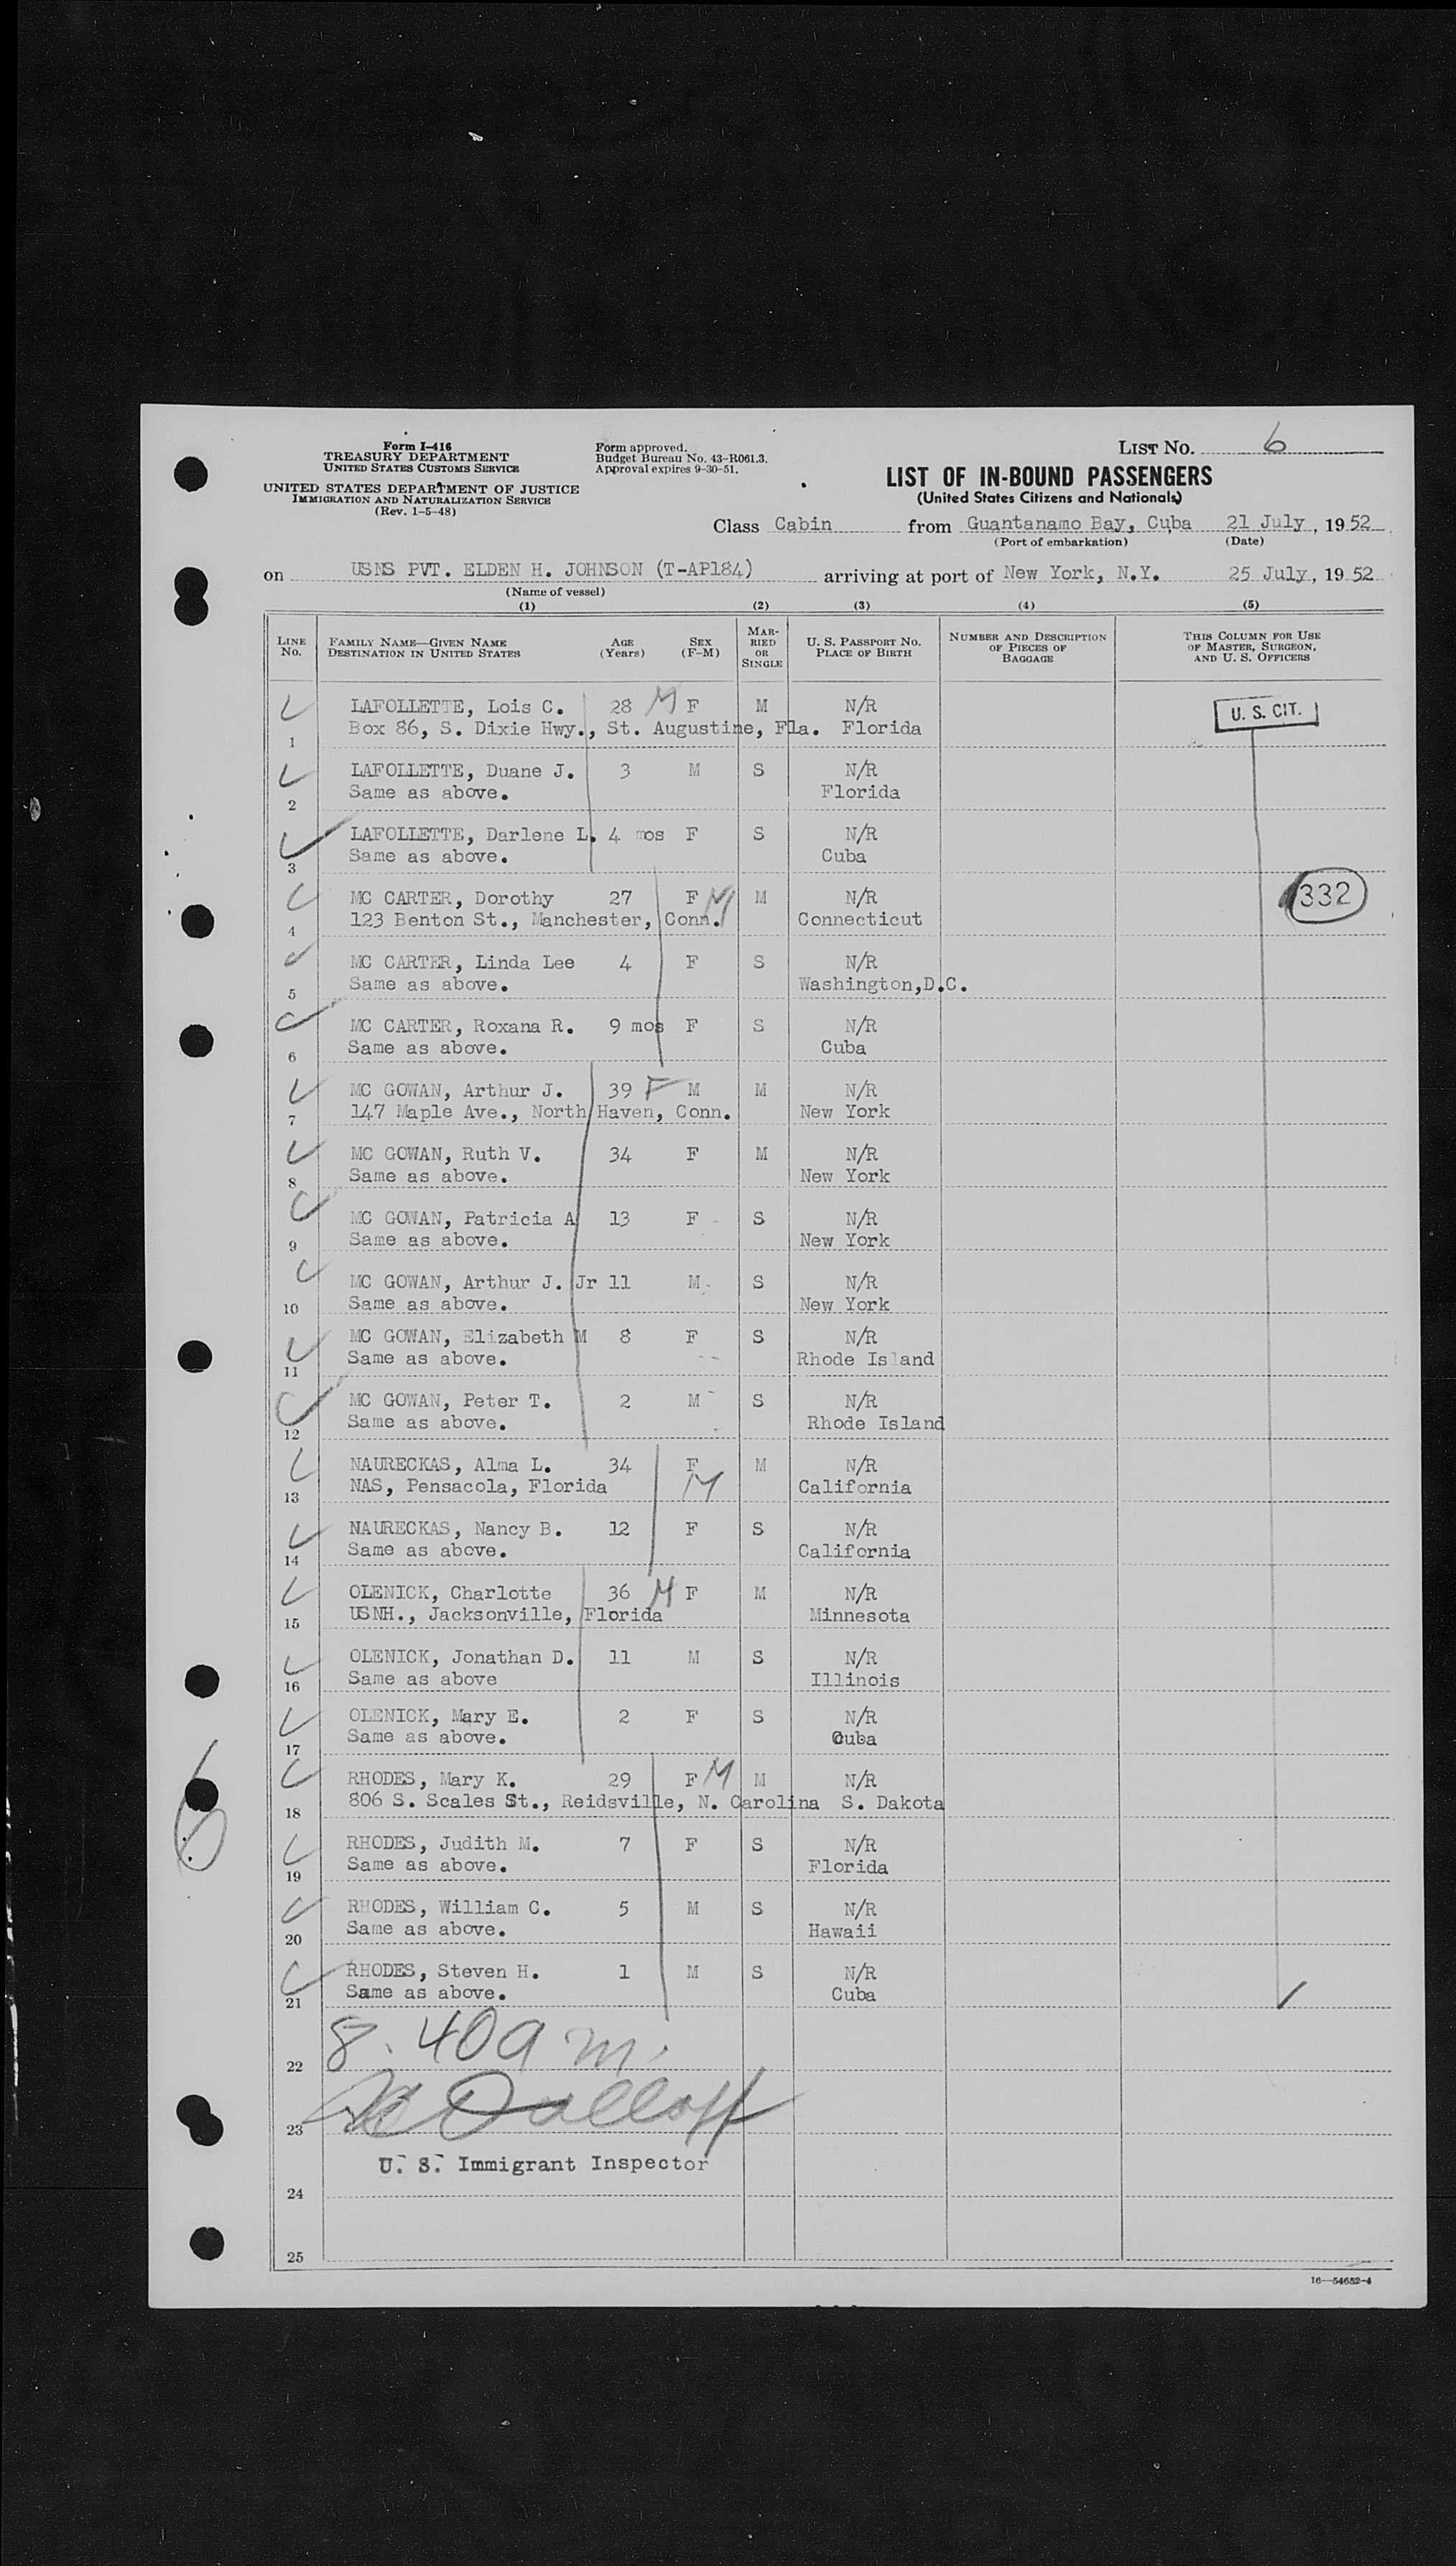 Form I-416
TREASURY DEPARTMENT
UNITED STATES CUSTOMS SERVICE
UNITED STATES DEPARTMENT OF JUSTICE
IMMIGRATION AND NATURALIZATION SERVICE
(Rev. 1-5-48)
Form approved.
Budget Bureau No. 43-R061.3.
Approval expires 9-30-51.
LIST No. 6
LIST OF IN-BOUND PASSENGERS
(United States Citizens and Nationals)
Class Cabin from Guantanamo Bay, Cuba 21 July, 1952
(Port of embarkation) (Date)
on USNS PVT. ELDEN H. JOHNSON (T-AP184) arriving at port of New York, N.Y. 25 July, 1952
(Name of vessel)
(1) (2) (3) (4) (5)
LINE No. FAMILY NAME—GIVEN NAME DESTINATION IN UNITED STATES AGE (Years) SEX (F-M) MARRIED OR SINGLE U. S. PASSPORT NO. PLACE OF BIRTH NUMBER AND DESCRIPTION OF PIECES OF BAGGAGE THIS COLUMN FOR USE OF MASTER, SURGEON, AND U. S. OFFICERS
LAFOLLETTE, Lois C. 28 M F M N/R U. S. CIT.
1 Box 86, S. Dixie Hwy., St. Augustine, Fla. Florida
LAFOLLETTE, Duane J. 3 M S N/R
2 Same as above. Florida
LAFOLLETTE, Darlene L. 4 mos F S N/R
3 Same as above. Cuba
MC CARTER, Dorothy 27 F M M N/R 332
4 123 Benton St., Manchester, Conn. Connecticut
MC CARTER, Linda Lee 4 F S N/R
5 Same as above. Washington,D.C.
MC CARTER, Roxana R. 9 mos F S N/R
6 Same as above. Cuba
MC GOWAN, Arthur J. 39 F M M N/R
7 147 Maple Ave., North Haven, Conn. New York
MC GOWAN, Ruth V. 34 F M N/R
8 Same as above. New York
MC GOWAN, Patricia A 13 F S N/R
9 Same as above. New York
MC GOWAN, Arthur J. Jr 11 M S N/R
10 Same as above. New York
MC GOWAN, Elizabeth M 8 F S N/R
11 Same as above. Rhode Island
MC GOWAN, Peter T. 2 M S N/R
12 Same as above. Rhode Island
NAURECKAS, Alma L. 34 F M N/R
13 NAS, Pensacola, Florida M California
NAURECKAS, Nancy B. 12 F S N/R
14 Same as above. California
OLENICK, Charlotte 36 M F M N/R
15 USNH., Jacksonville, Florida Minnesota
OLENICK, Jonathan D. 11 M S N/R
16 Same as above Illinois
OLENICK, Mary E. 2 F S N/R
17 Same as above. Cuba
RHODES, Mary K. 29 F M M N/R
18 806 S. Scales St., Reidsville, N. Carolina S. Dakota
RHODES, Judith M. 7 F S N/R
19 Same as above. Florida
RHODES, William C. 5 M S N/R
20 Same as above. Hawaii
RHODES, Steven H. 1 M S N/R
21 Same as above. Cuba
22 8.40 a m.
23
U. S. Immigrant Inspector
24
25
16—54652-4